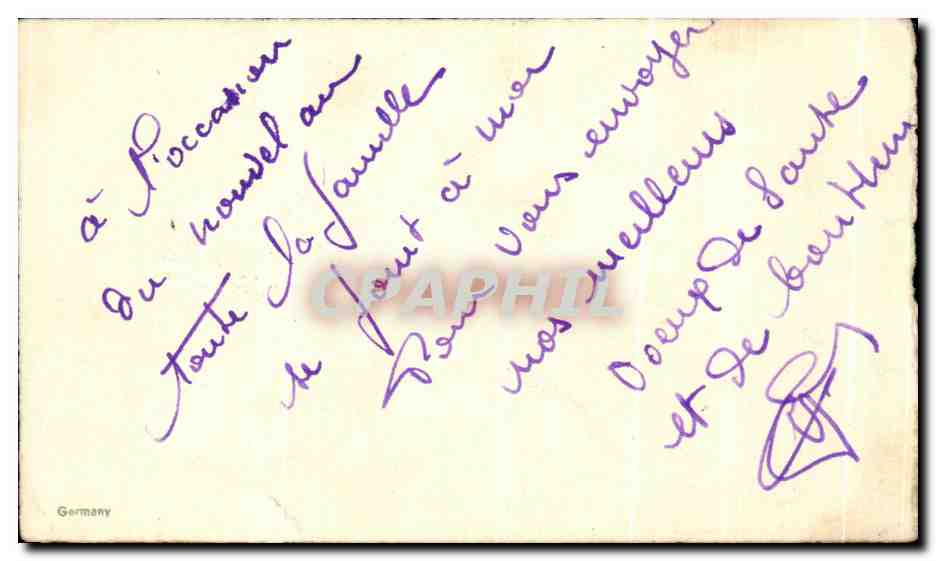 à l'occasion
du nouvel an
toute la famille
se joint à moi
pour vous envoyer
nos meilleurs
voeux de Santé
et de bonheur
CPAPHIL
Germany